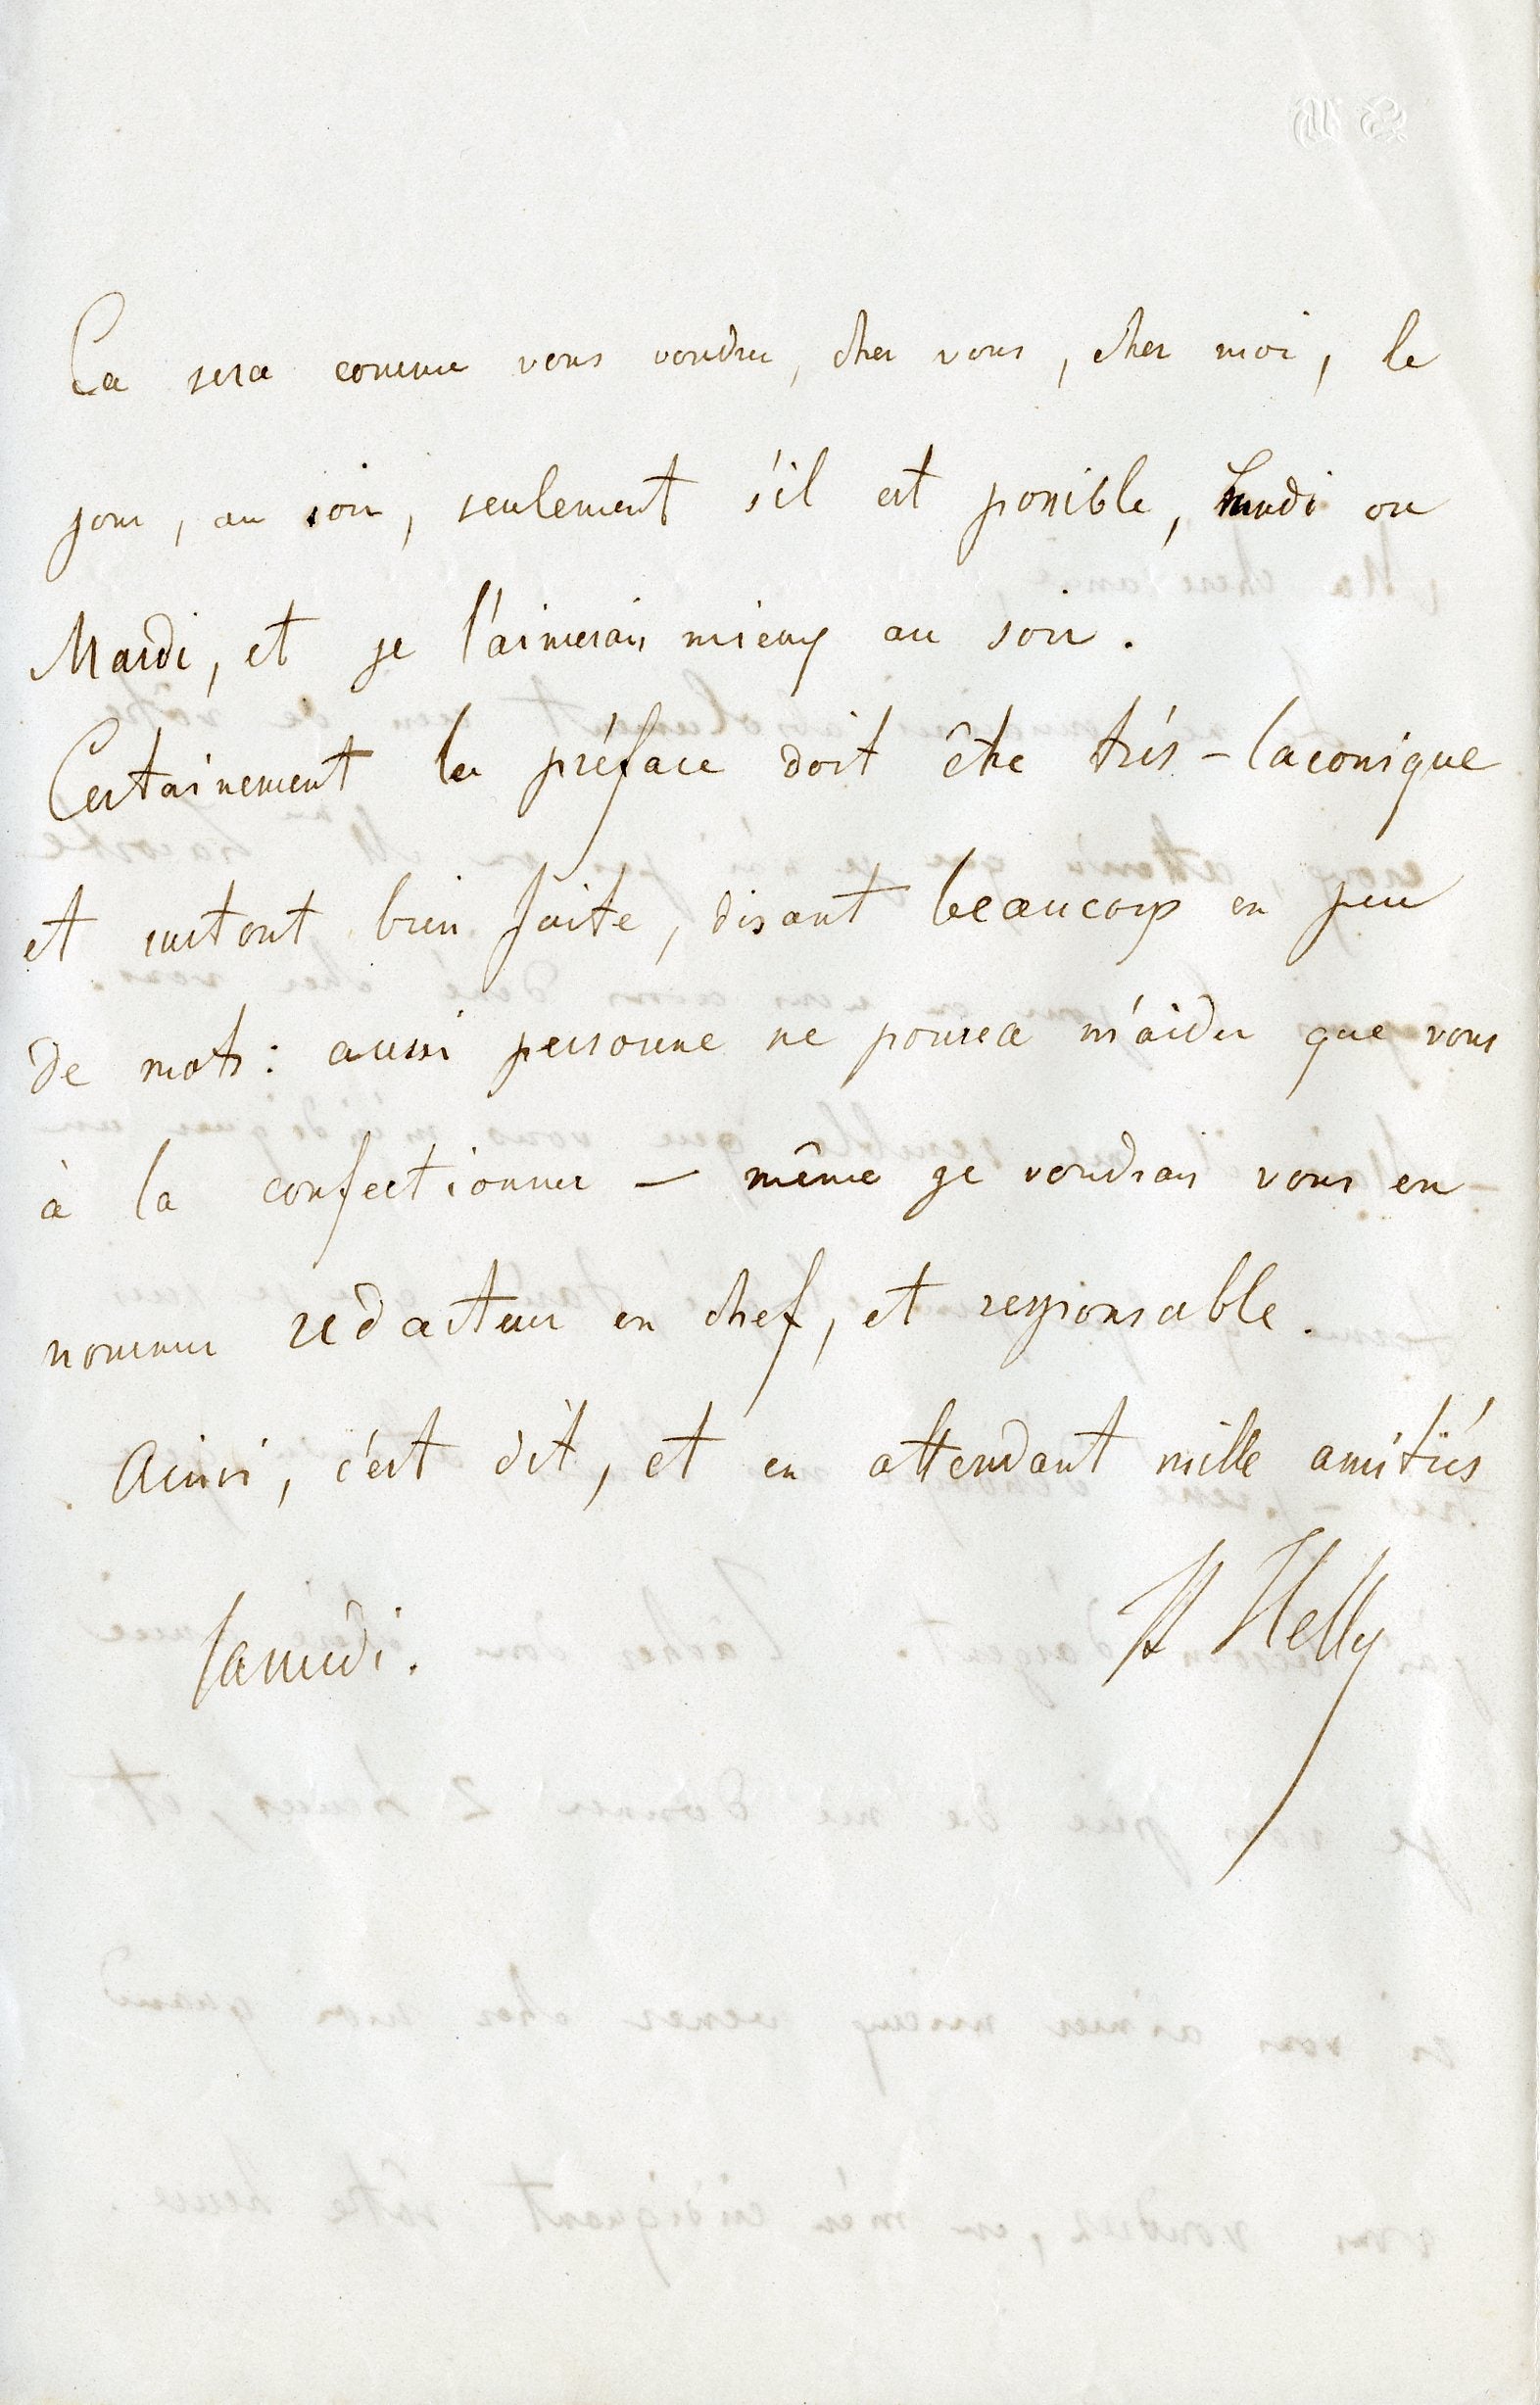 Ça sera comme vous voudrez, chez vous, chez moi, le
jour, au soir, seulement s'il est possible, Lundi ou
Mardi, et je l'aimerais mieux au soir.
Certainement la préface doit être trés-laconique
et surtout bien faite, disant beaucoup en peu
de mots: aussi personne ne pourra m'aider que vous
à la confectionner – même je voudrais vous en
nommer redacteur en chef, et responsable.
Ainsi, c'est dit, et en attendant mille amitiés
Samedi.